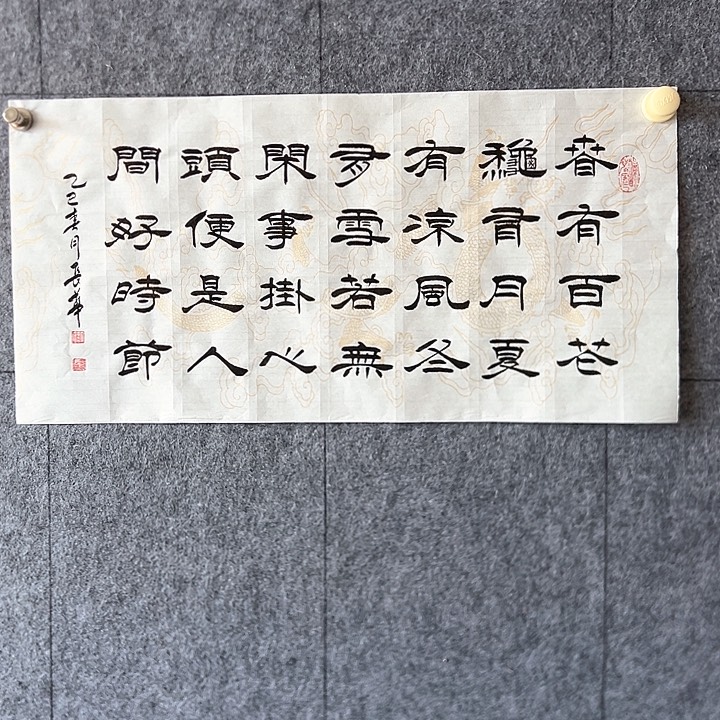 春有百花
龝有月夏
有涼風冬
有雪若無
閑事掛心
頭便是人
間好時節
乙巳春月長華